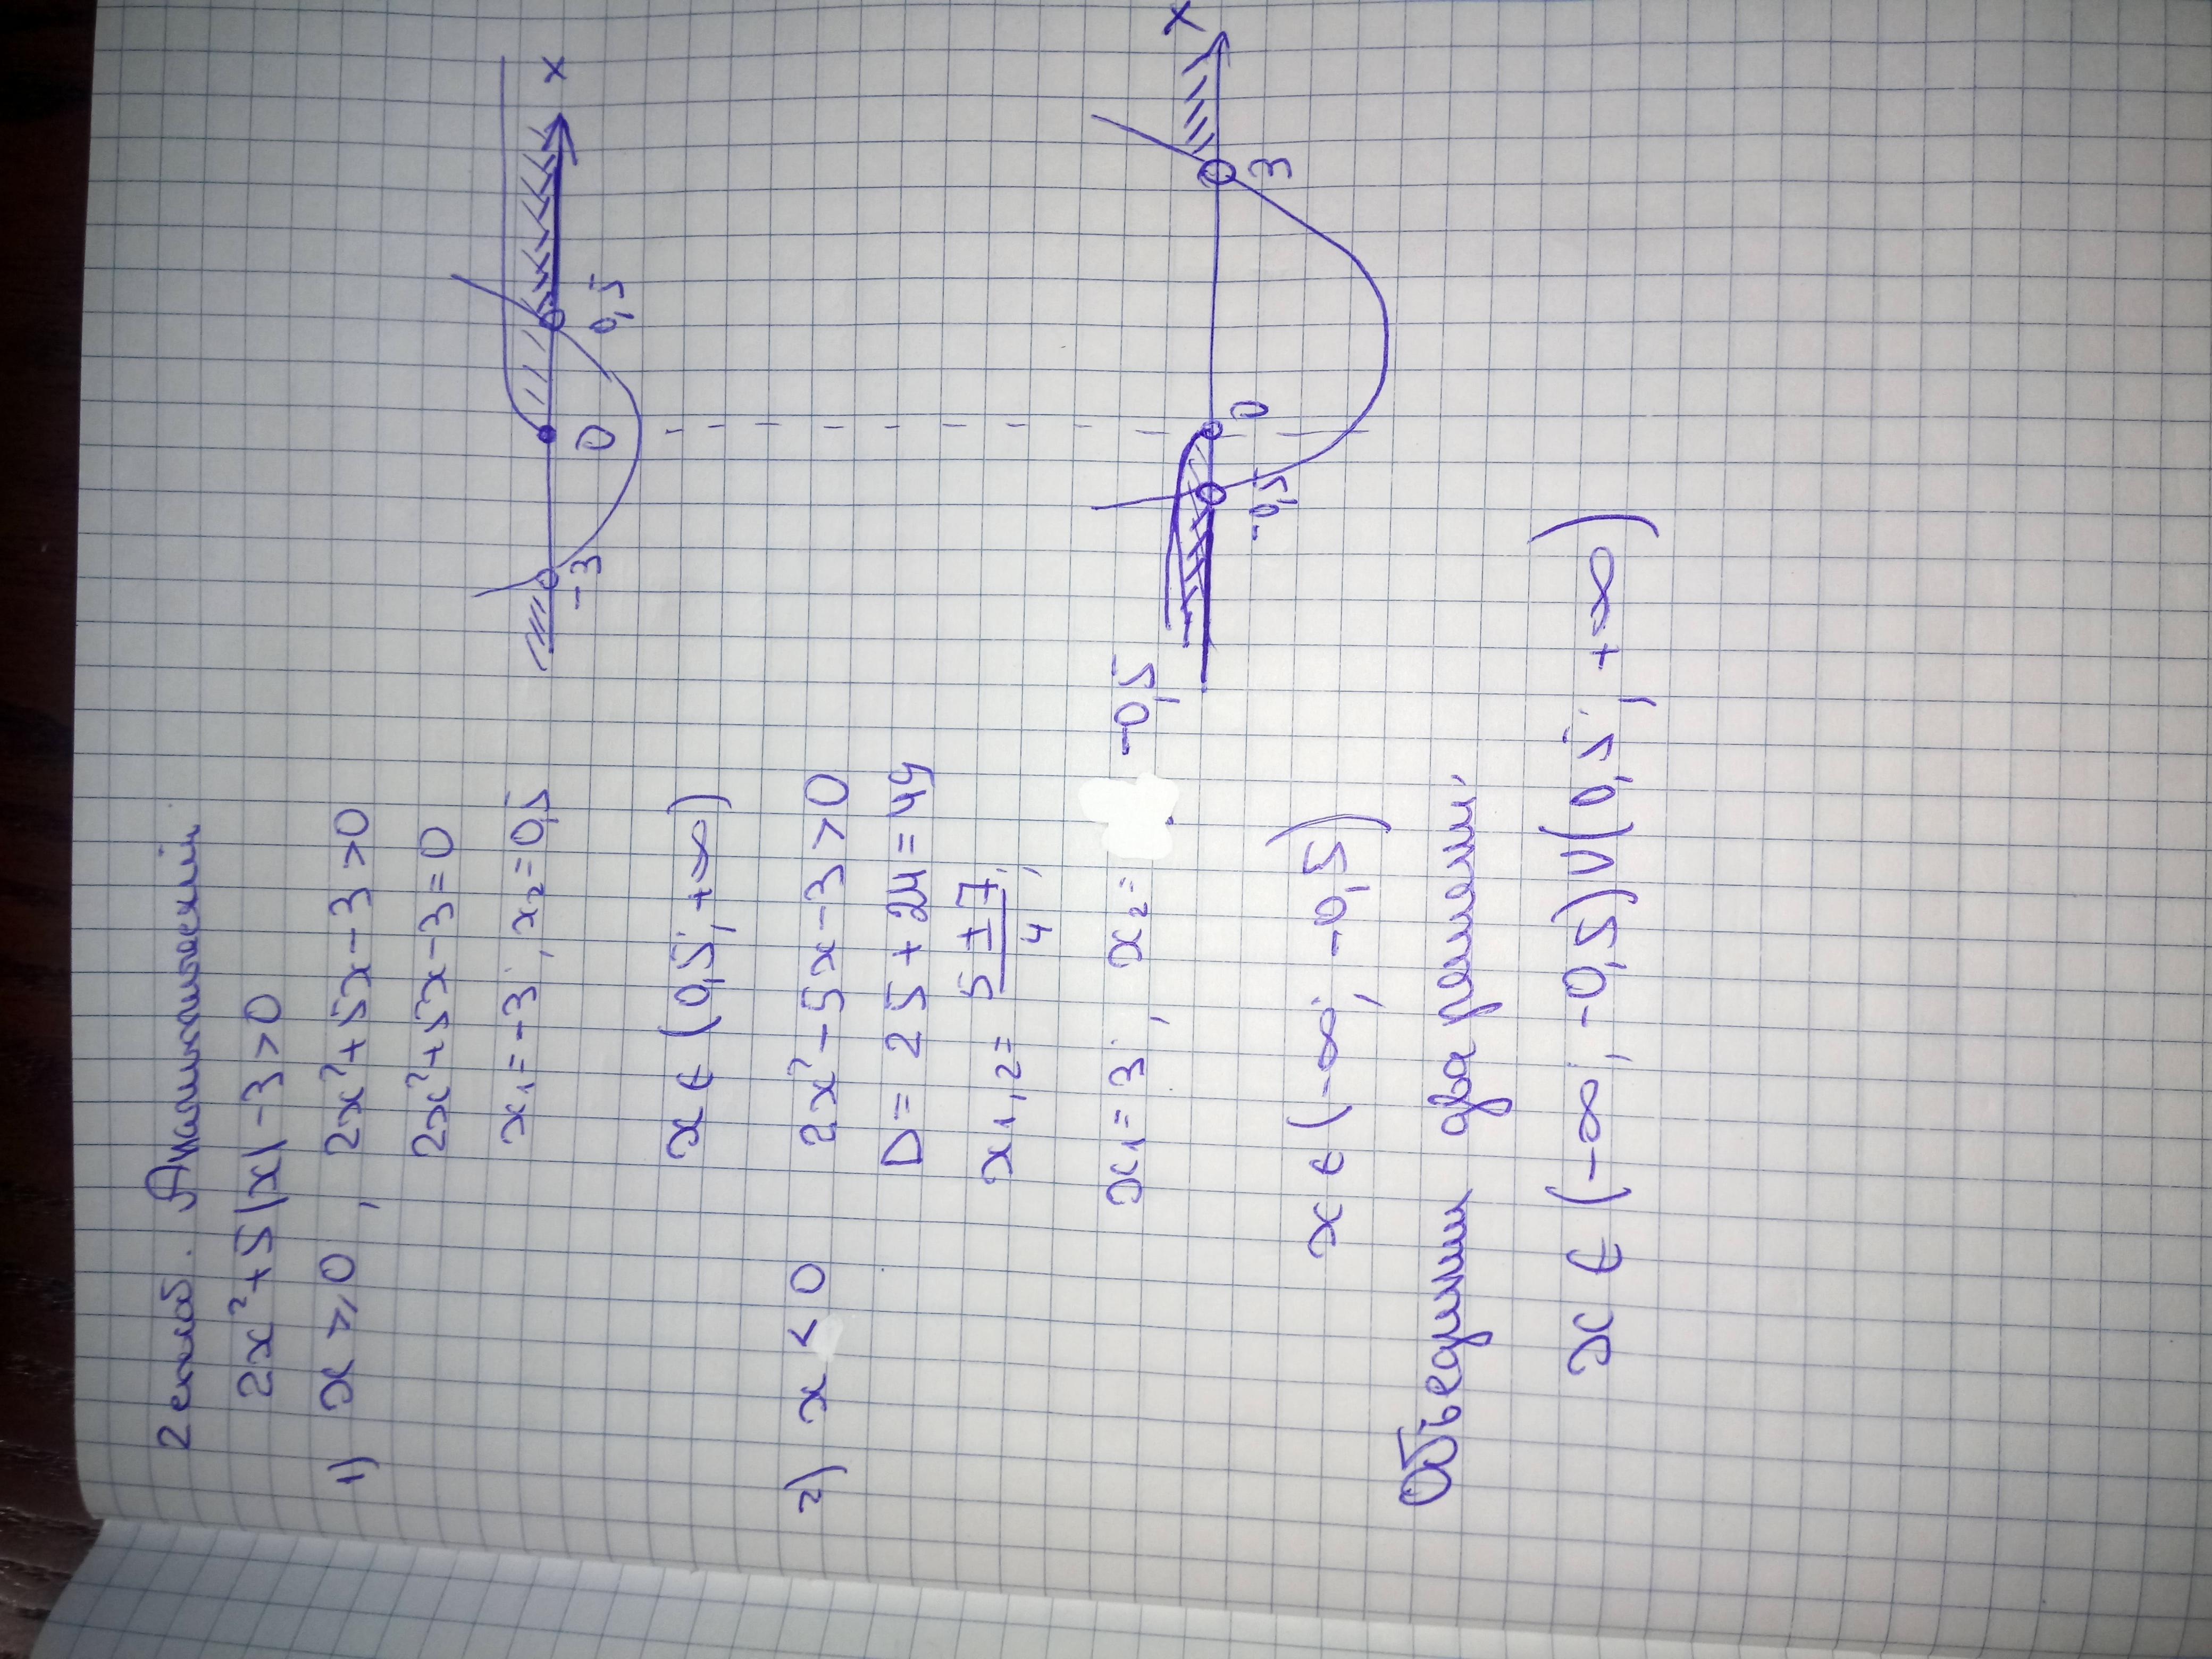 2 способ. Аналитический
2x²+5|x|-3>0
1) x ⩾ 0, 2x²+5x-3>0
2x²+5x-3=0
x₁=-3; x₂=0,5
-3 0 0,5 x
x ∈ (0,5; +∞)
2) x < 0 2x²-5x-3>0
D = 25+24=49
x₁,₂= (5±7)/4;
x₁=3; x₂= -0,5
-0,5 0 3 x
x ∈ (-∞; -0,5)
Объединим два решения:
x ∈ (-∞; -0,5)∪(0,5; +∞)